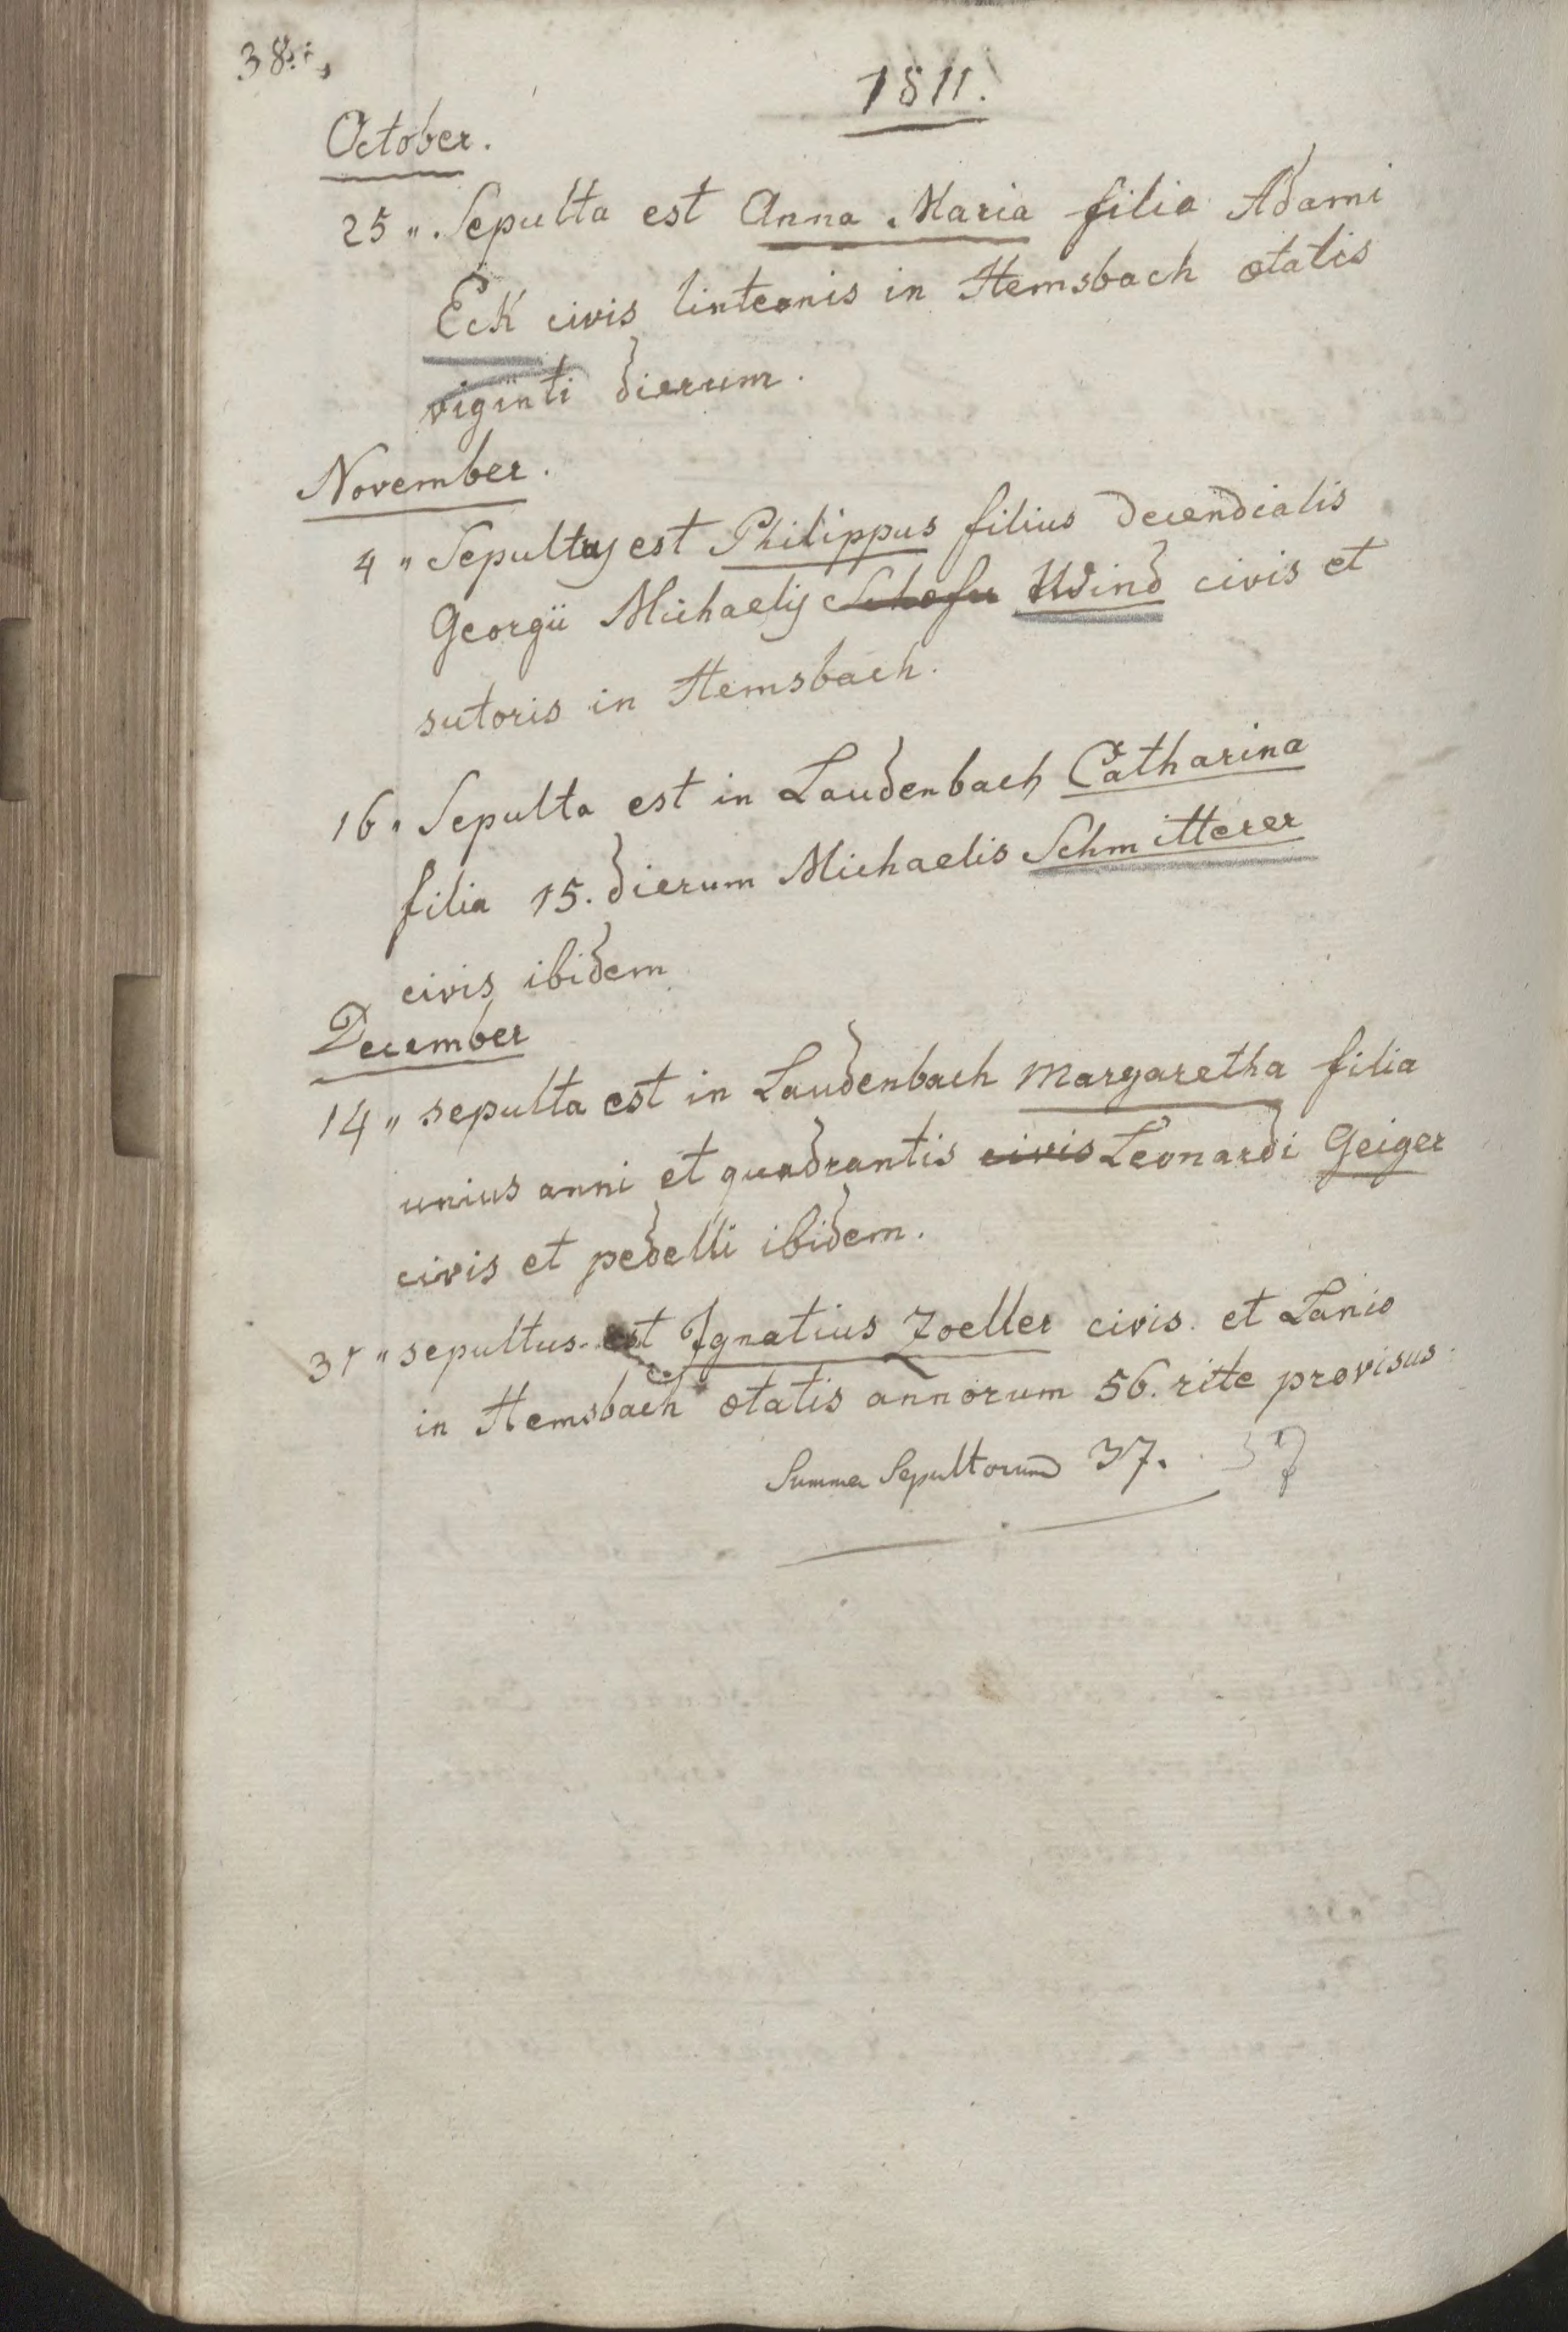 38.
1811.
October.
25 ". Sepulta est Anna Maria filia Adami
Eck civis linteonis in Hemsbach ætatis
viginti dierum.
November.
4 " Sepultus est Philippus filius decendialis
Georgii Michaelis Schefer Wind civis et
sutoris in Hemsbach.
16 " Sepulta est in Laudenbach Catharina
filia 15. dierum Michaelis Schmitterer
civis ibidem
December
14 " sepulta est in Laudenbach Margaretha filia
unius anni et quadrantis civis Leonardi Geiger
civis et pedelli ibidem.
31 " sepultus est Ignatius Zoeller civis et Lanio
in Hemsbach ætatis annorum 56. rite provisus.
Summa Sepultorum 37. 37